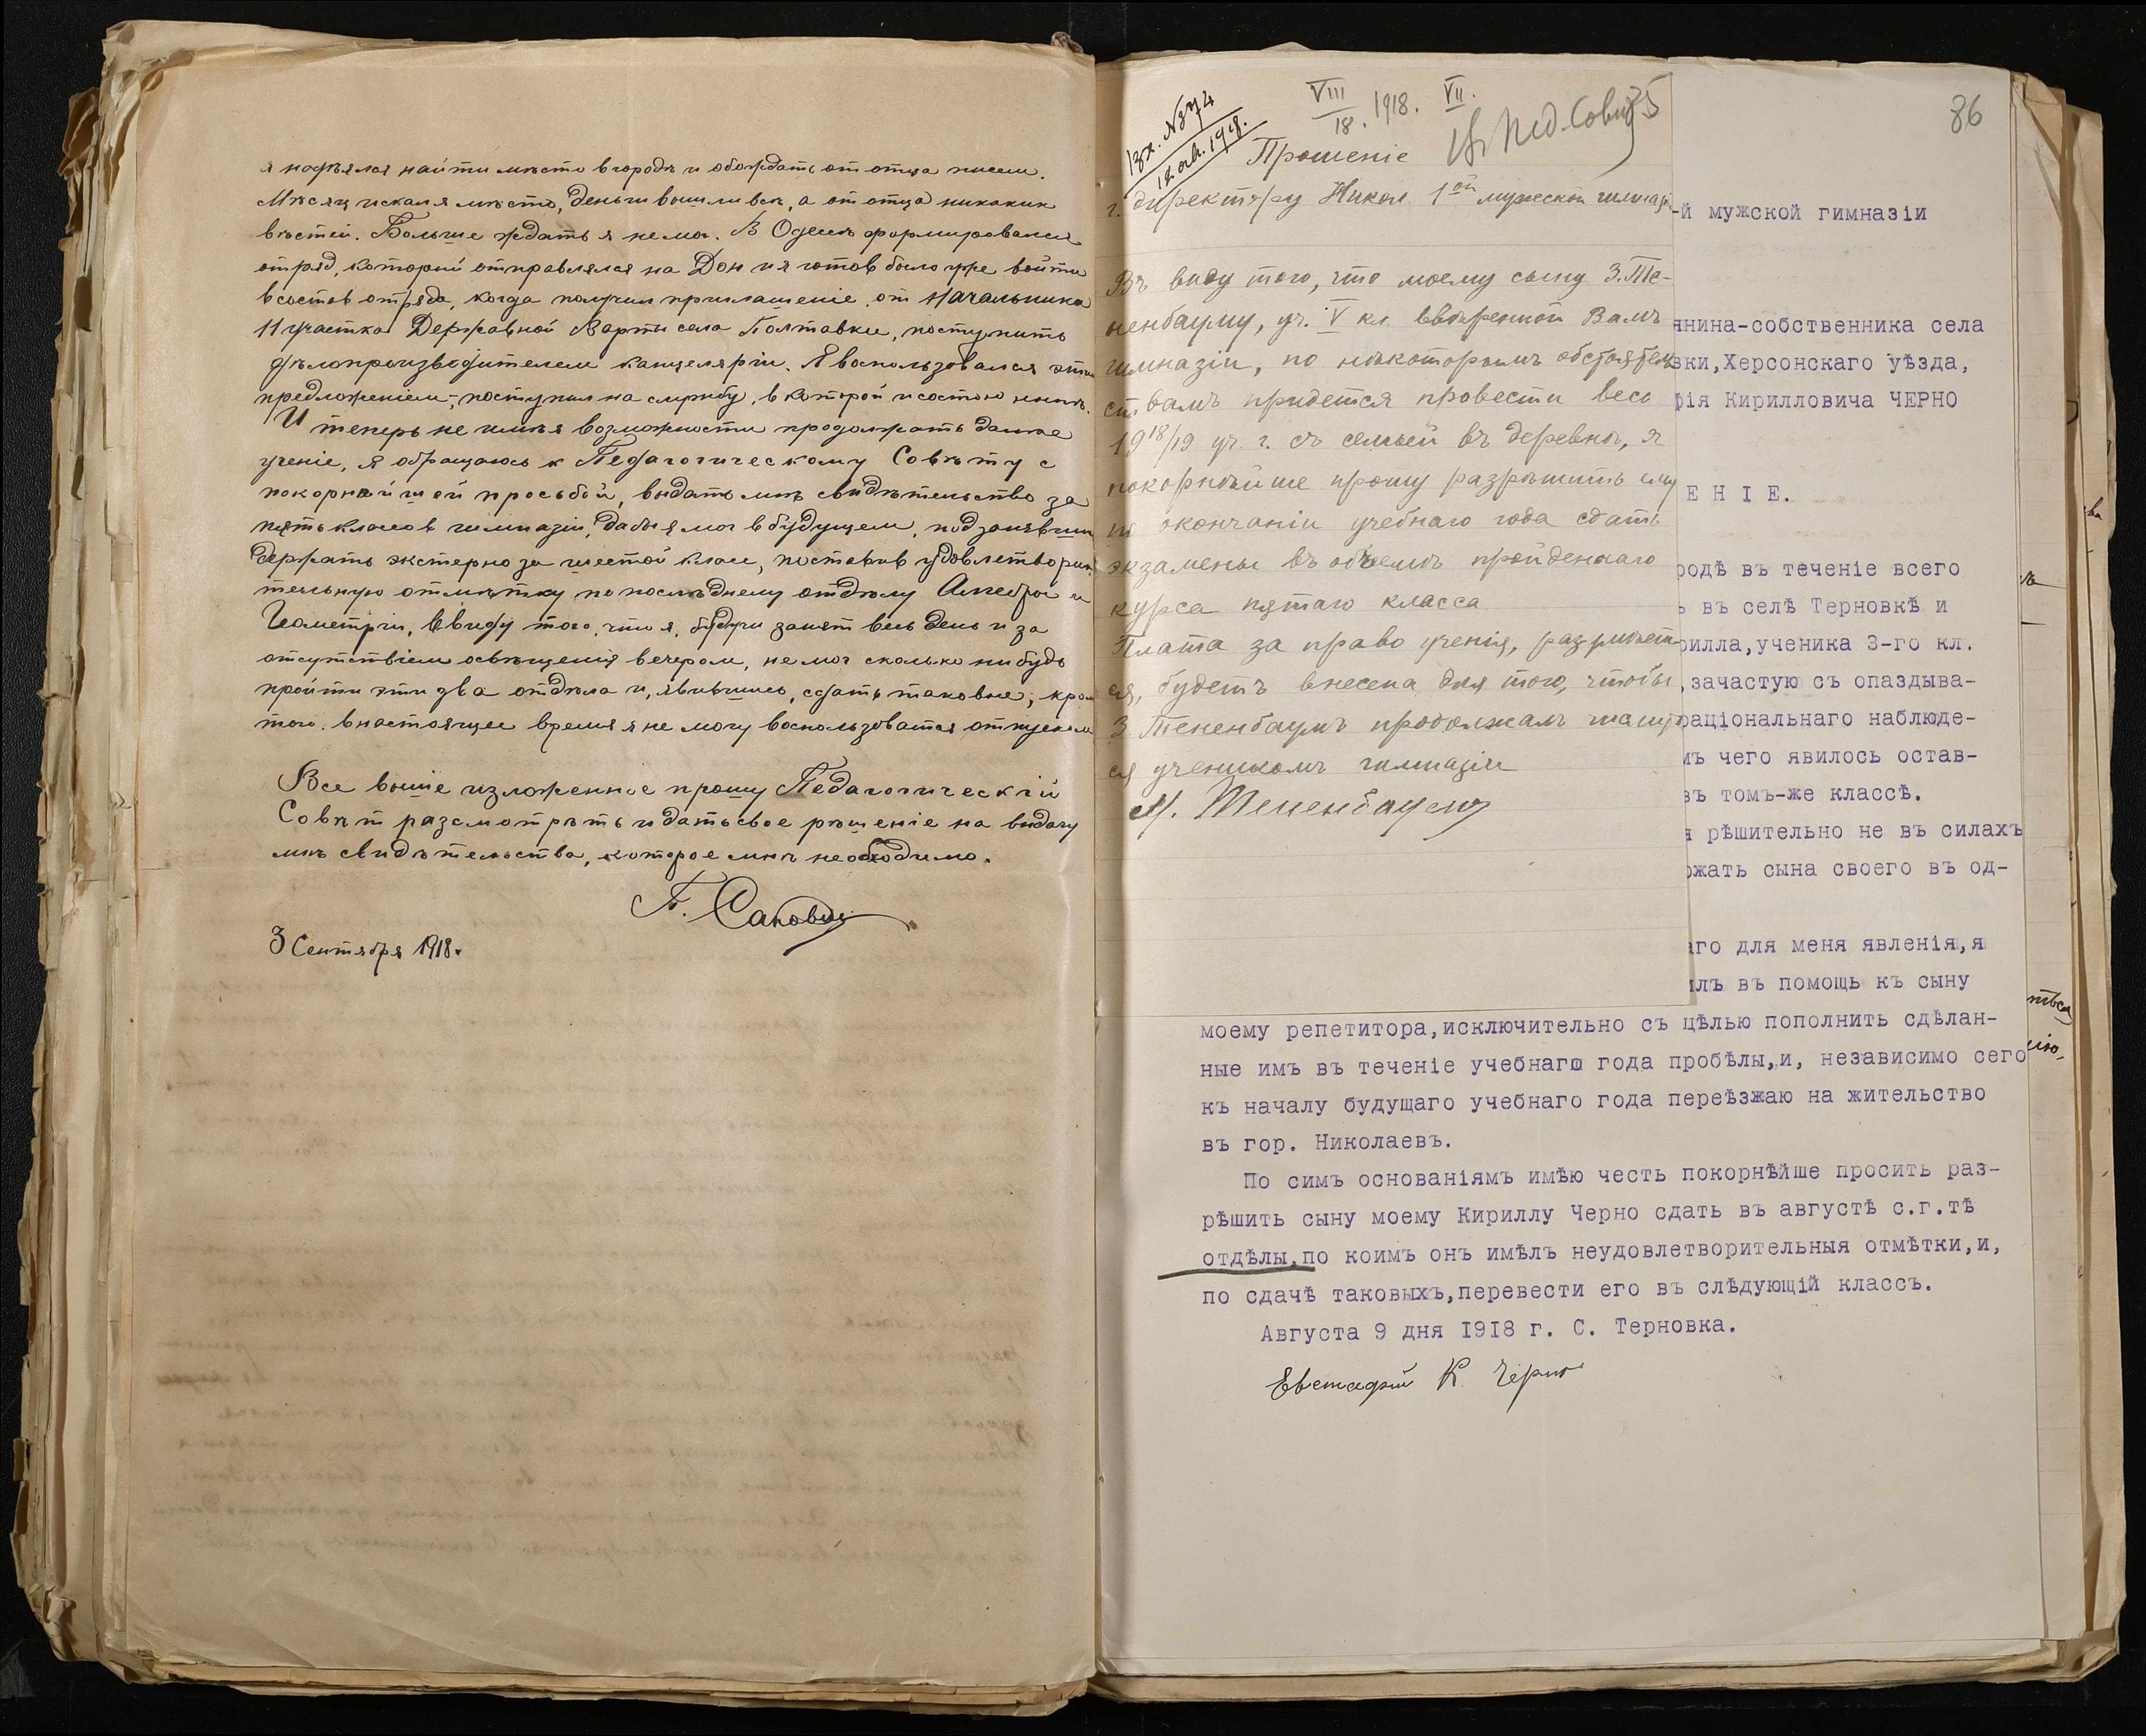 я надѣялся найти мѣсто в городѣ и обождать от отца писем.
Мѣсяц искал я мѣсто, деньги вышли всѣ, а от отца никаких
вѣстей. Больше ждать я не мог. В Одессѣ формировался
отряд, который отправлялся на Дон и я готов было уже войти
в состав отряда, когда получил приглашеніе от Начальника
11 участка Державной Варты села Полтавки, поступить
дѣлопроизводителем канцеляріи. Я воспользовался этим
предложеніем, поступил на службу, в которой и состою нынѣ.
И теперь не имѣя возможности продолжать далше
ученіе, я обращаюсь к Педагогическому Совѣту с
покорнѣйшей просьбой, выдать мнѣ свидѣтельство за
пять класов гимназіи, дабы я мог в будущем, подзанявшись
держать экстерно за шестой клас, поставив удовлетвори-
тельную отмѣтку по послѣднему отдѣлу Алгебры и
Геометріи, ввиду того, что я, будучи занят весь день и за
отсутствіем освѣщенія вечером, не мог сколько нибудь
пройти эти два отдѣла и, явившись, сдать таковые; кромѣ
того, в настоящее время я не могу воспользоватся отпуском
Все выше изложенное прошу Педагогическій
Совѣт разсмотрѣть и дать свое рѣшеніе на выдачу
мнѣ свидѣтельства, которое мнѣ необходимо.
П. Сакович
3 Сентября 1918 г.
Вх. №874
18. авг. 1918.
VIII
18. 1918. VII.
Въ Пед. Совѣт
35
86
Прошеніе
г. директору Никол 1ой мужской гимназіи
Въ виду того, что моему сыну З. Те-
ненбауму, уч. V кл. ввѣренной Вамъ
гимназіи, по нѣкоторымъ обстоятель
ствамъ придется провести весь
1918/19 уч. г. съ семьей въ деревнѣ, я
покорнѣйше прошу разрѣшить ему
по окончаніи учебнаго года сдать
экзамены въ объемѣ пройденнаго
курса пятаго класса
Плата за право ученія, разумѣет
ся, будетъ внесена для того, чтобы
З Тененбаумъ продолжалъ числит
ся ученикомъ гимназіи
М. Тененбаумъ
-й мужской гимназіи
янина-собственника села
вки,Херсонскаго уѣзда,
фія Кирилловича ЧЕРНО
Е Н І Е.
родѣ въ теченіе всего
ь въ селѣ Терновкѣ и
рилла,ученика 3-го кл.
,зачастую съ опаздыва-
раціональнаго наблюде-
мъ чего явилось остав-
въ томъ-же классѣ.
я рѣшительно не въ силахъ
ржать сына своего въ од-
аго для меня явленія,я
илъ въ помощь къ сыну
моему репетитора,исключительно съ цѣлью пополнить сдѣлан-
ные имъ въ теченіе учебнаго года пробѣлы,и, независимо сего
къ началу будущаго учебнаго года переѣзжаю на жительство
въ гор. Николаевъ.
По симъ основаніямъ имѣю честь покорнѣйше просить раз-
рѣшить сыну моему Кириллу Черно сдать въ августѣ с.г.тѣ
отдѣлы,по коимъ онъ имѣлъ неудовлетворительныя отмѣтки,и,
по сдачѣ таковыхъ,перевести его въ слѣдующій классъ.
Августа 9 дня 1918 г. С. Терновка.
Евстафій К. Черно